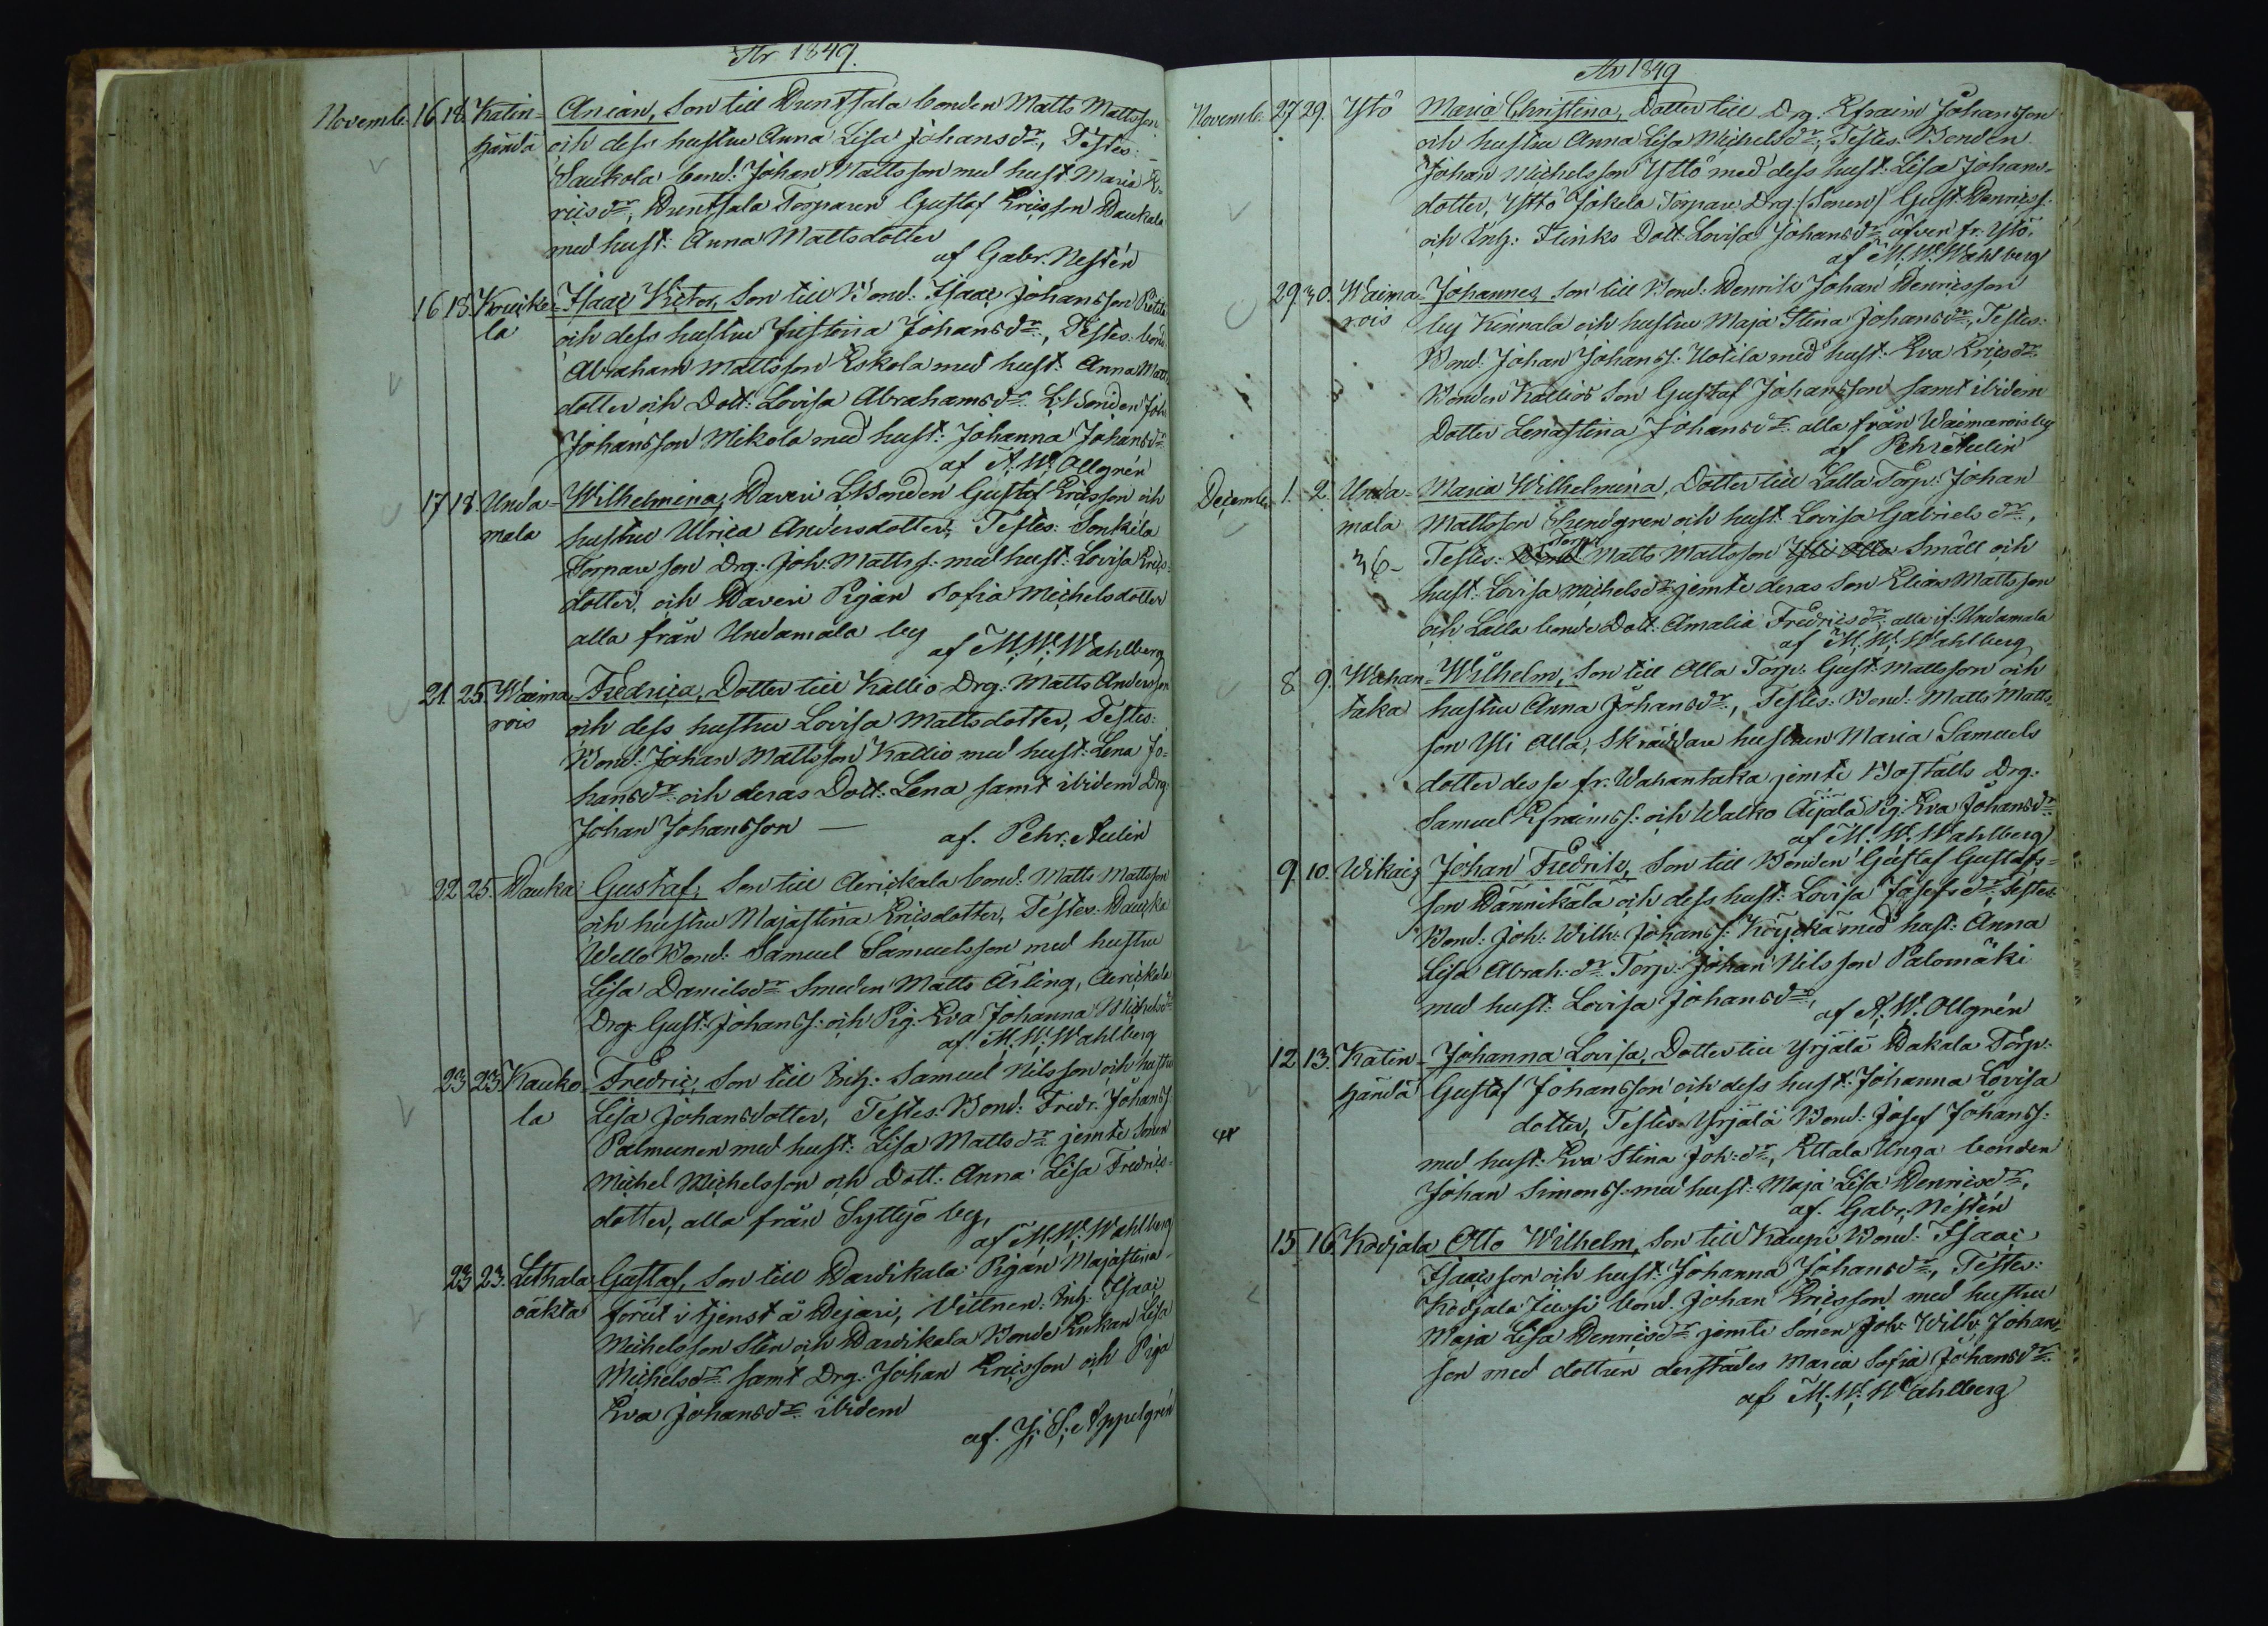 År 1849.
Novemb. 16 18. Katin= Anian, Son till Huntsala bonden Matts Mattsson
händä och dess hustru Anna Lisa Johansdr, Testes:
Saukola bond: Johan Mattsson med hust Maria E=
ricsdr, Huntsala Torparen Gustaf Ericsson Haukala
med hust: Anna Mattsdotter
af Gabr. Nestén
16 18. Koucke= Isaac Victor, Son till Bond: Isaac Johansson
la och dess hustru Justina Johansdr, Testes: bond:
Abraham Mattsson Eskola med hust: Anna Matts
dotter och Dott: Lovisa Abrahamsdr LBonden Joh:
Johansson Mikola med hust: Johanna Johansdr
af A. W. Ollgrén
17 18. Unda= Wilhelmina, Haveri LBonden Gustaf Ericsson och
mala hustru Ulrica Andersdotter, Testes: Sonkila
Torpare son Drg: Joh: Matts s: med hust: Lovisa Erics=
dotter, och Haveri Pigan Sofia Michelsdotter
alla från Undamala by
af M. W. Wahlberg
21. 25. Waima= Fredrica, Dotter till Kallio Drg: Matts Andersson
rois och dess hustru Lovisa Mattsdotter, Testes:
Bond: Johan Mattsson Kallio med hust: Lena Jo=
hansdr och deras Dott: Lena samt ibidem Drg:
Johan Johansson — af. Pehr: Aulin
22. 25. Hauka Gustaf, Son till Aerickala bond: Matts Mattsson
och hustru Majastina Ericsdotter, Testes. Haucka
Wello Bond: Samuel Samuelsson med hustru
Lisa Danielsdr Smeden Matts Ärling, Aerickala
Drg: Gust: Johanss: och Pig: Eva Johanna Michelsdr
af M. W. Wahlberg
23 23. Kauko= Fredric, Son till Inh: Samuel Nilsson och hustru
la Lisa Johansdotter, Testes: Bond: Fredr. Johanss
Palmunen med hust: Lisa Mattsdr jemte Sonen
Michel Michelsson och Dott: Anna Lisa Fredrics=
dotter, alla från Syttyö by,
af M. W. Wahlberg
23 23. Lethala Gustaf, Son till Hardikala Pigan Majastina
oäkta förut i tjenst å Wejari, Vittnen: Inh: Isaac
Michelsson Sten och Hardikala Bonde Enkan Lisa
Michelsdr samt Drg: Johan Ericsson och Piga
Eva Johansdr ibidem
af. J. S. Appelgrén
År 1849
Novemb. 27 29. Yttö Maria Christina, Dotter till Drg. Efraim Johansson
och hustru Anna Lisa Michelsdr, Testes: Bonden
Johan Michelsson Yttö med dess hust: Lisa Johans=
dotter, Yttö Jokela Torpare Drg: (Sonen) Gust: Henricss:
och Inh: Flinks Dott: Lovisa Johansdr äfven fr. Yttö.
af M. W. Wahlberg
29. 30. Waima= Johannes, Son till Bond: Henrik Johan Henricsson
rois by Kinnala och hustru Maja Stina Johansdr, Testes:
Bond: Johan Johanss: Uotila med hust: Eva Ericsdr
Bonden Kallios Son Gustaf Johansson samt ibidem
Dotter Lenastina Johansdr alla från Waimarois by
af Pehr Aulin
December 1. 2. Unda= Maria Wilhelmina, Dotter till Lalla Torp: Johan
mala Mattsson Hendgren och hust: Lovisa Gabriels dr,
36 Testes: Torp: Matts Mattsson Yli Alla Småll och
hust: Lovisa Michelsdr jemte deras Son Elias Mattsson
och Lalla bonde Dott: Amalia Fredricsdr alla if: Undamala
af M. W. Wahlberg
8. 9. Wahan= Wilhelm, Son till Alla Torp: Gust: Mattsson och
taka hustru Anna Johansdr, Testes: Bond: Matts Matts=
son Yli Alla, Skräddare hustrun Maria Samuels
dotter desse fr. Wahantaka jemte Boställs Drg:
Samuel Efraimss: och Walko Äijälä Pig: Eva Johansdr
af M. W. Wahlberg
9. 10. Wikais Johan Fredrik, Son till Bonden Gustaf Gustafs=
son Hännikälä och dess hust: Lovisa Josefsdr, Testes:
Bond: Joh: Wilh: Johanss:Köyckä med hust: Anna
Lisa Abrah: dr Torp: Johan Nilsson Palomäki
med hust: Lovisa Johansdr,
af A. W. Ollgrén
12 13. Katin= Johanna Lovisa, Dotter till Yrjälä Hakala Torp:
händä Gustaf Johansson och dess hust: Johanna Lovisa
dotter, Testes Yrjälä Bond: Josef Johanss:
med hust: Eva Stina Joh: dr, Ettala Unga bonden
Johan Simonss: med hust: Maja Lisa Henricsdr,
af. Gabr. Nestén
15 16. Kodjala Otto Wilhelm, Son till Kaupi Bond: Isaac
Isacsson och hust: Johanna Johansdr, Testes:
Kodjala Jussi bond. Johan Ericsson med hustru
Maja Lisa Henricsdr jemte Sonen Joh: Wilh: Johans
son med dottren derstädes Maria Sofia Johansdr.
af M. W. Wahlberg